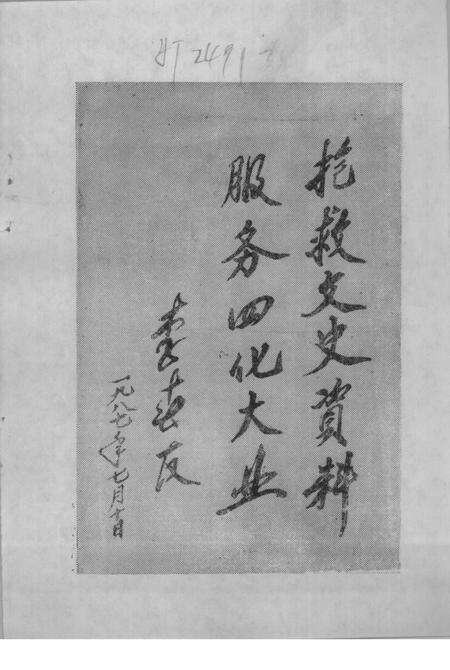 抢救文史資料
服务四化大业
李春友
一九八七年七月十日